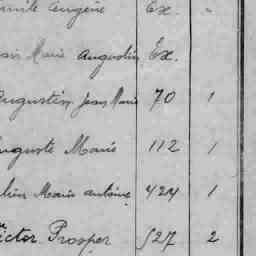 Eugène Ex. "
Marie Augustin Ex.
Augustin Jean Marie 70 1
Auguste Marie 112 1
Marie Antoine 424 1
Victor Prosper 527 2